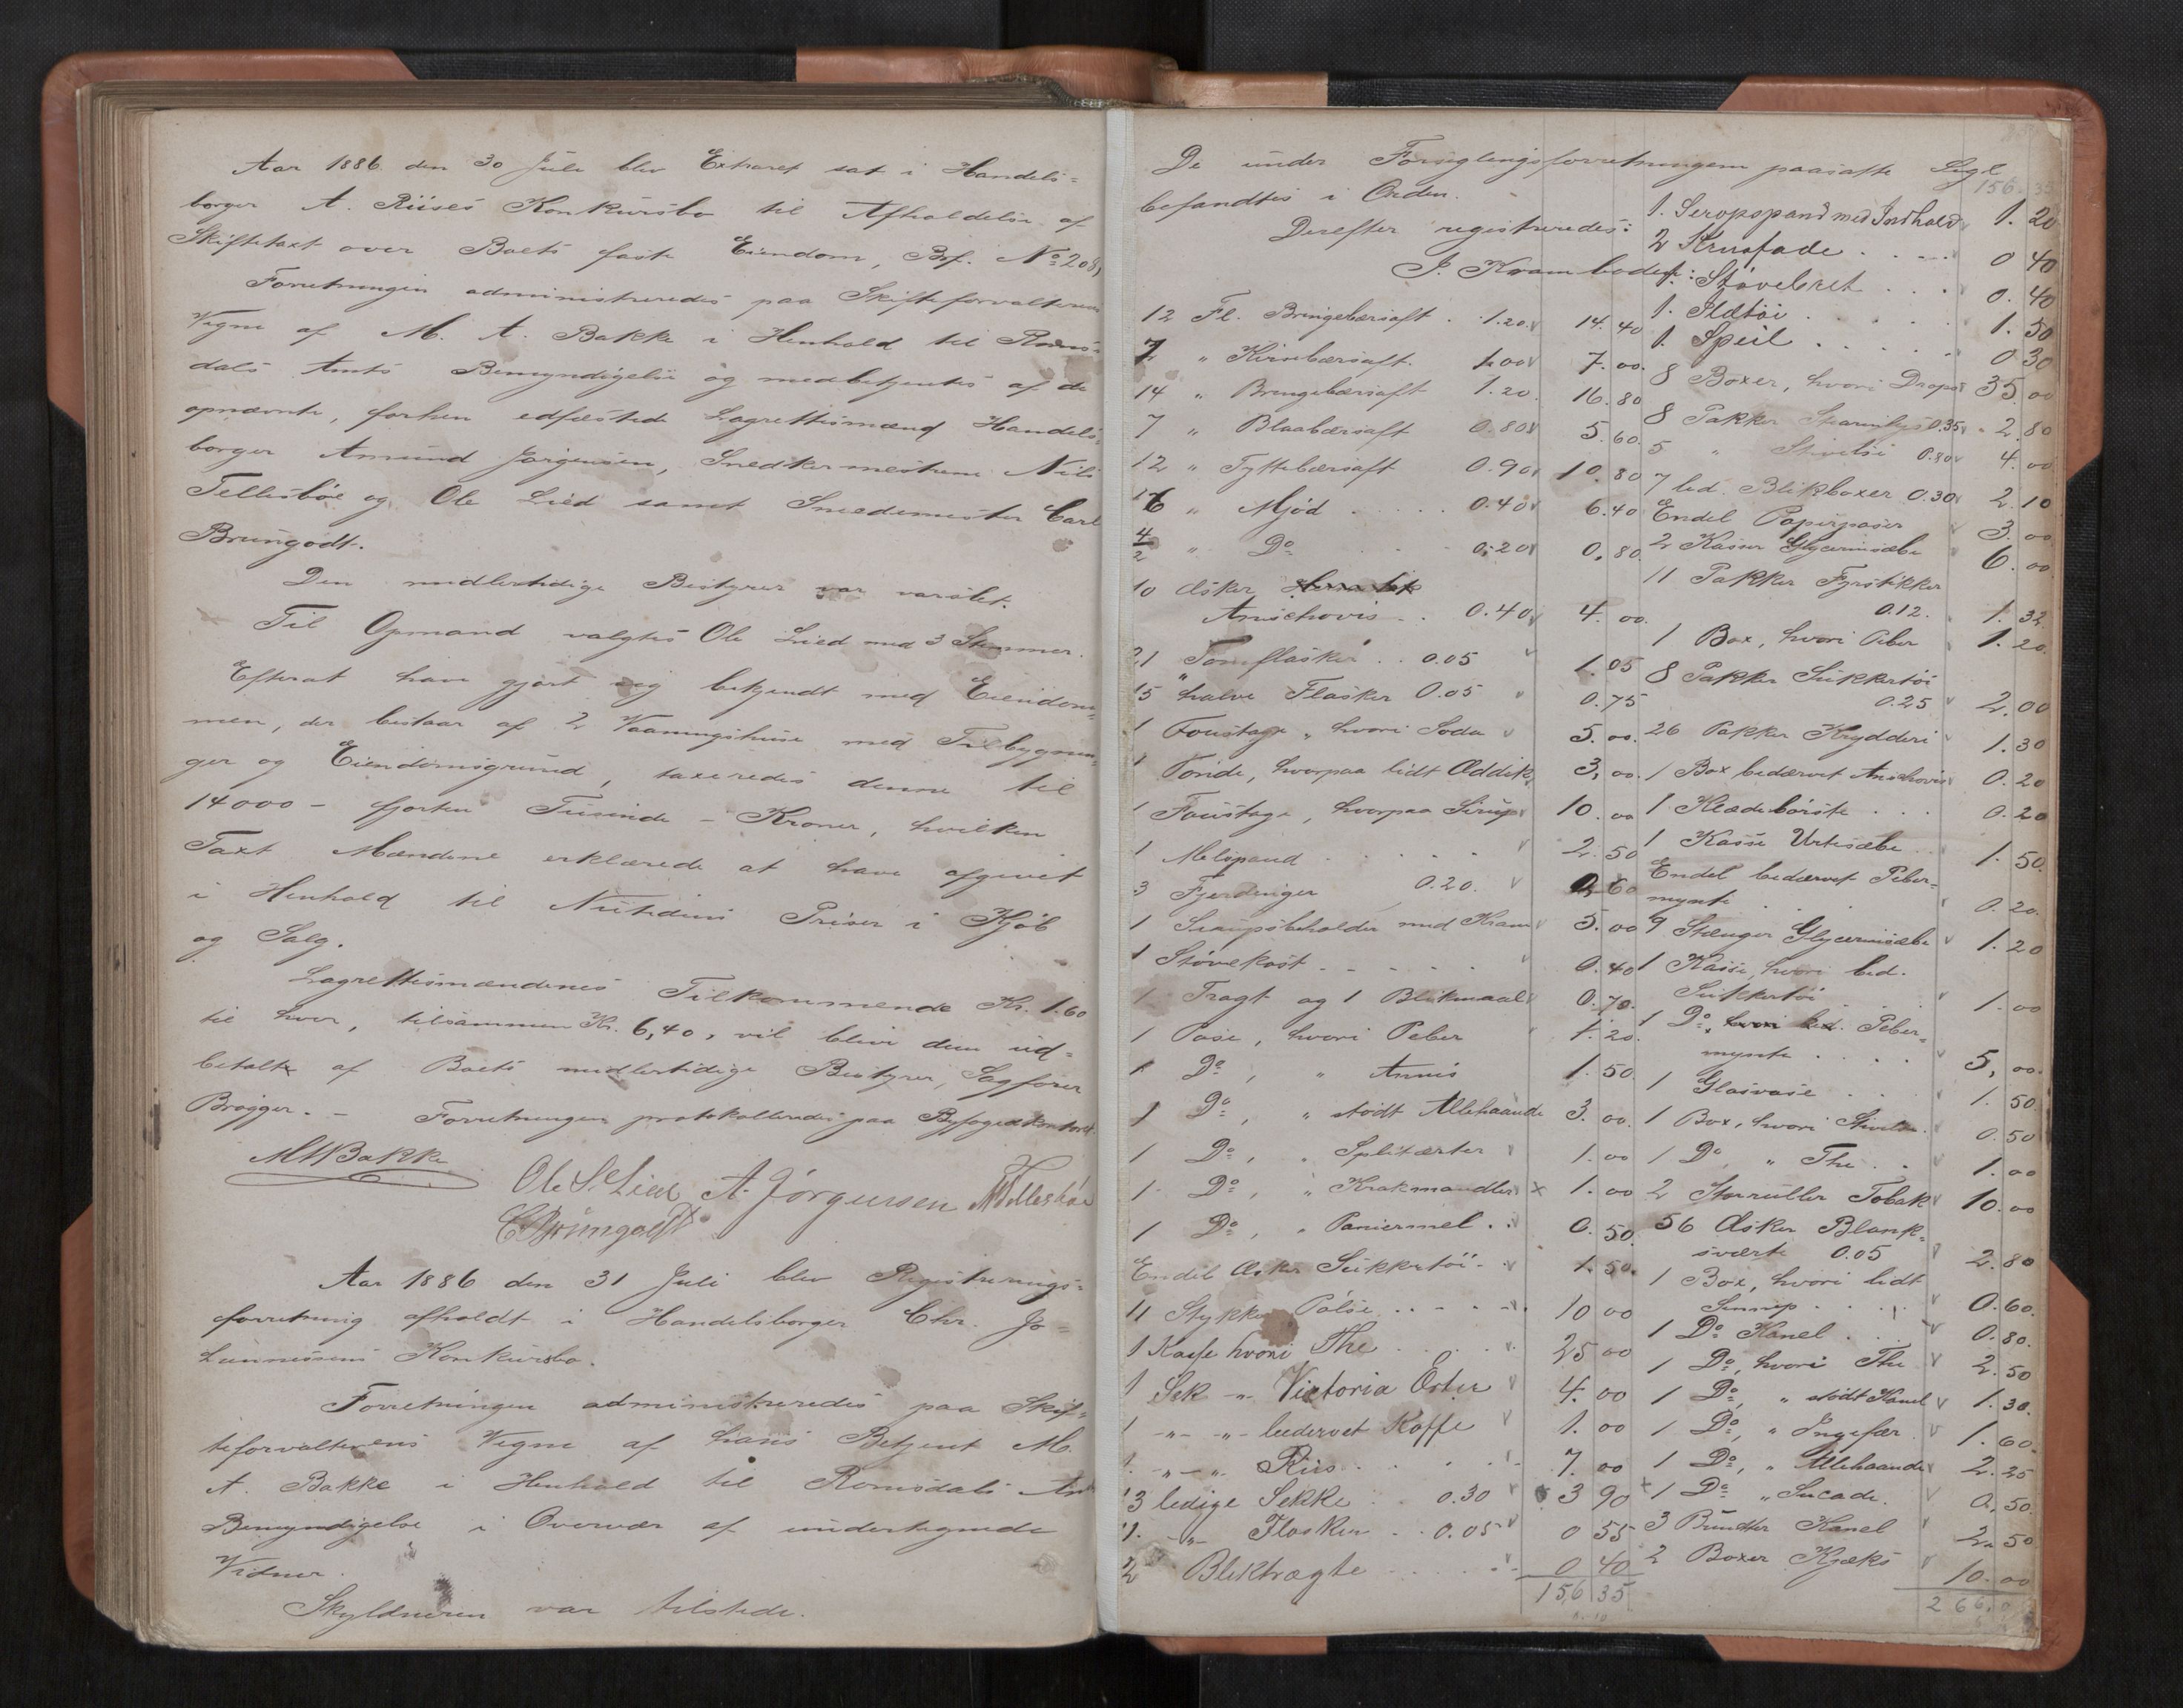 Aar 1886 den 30 Juli blev Extraret sat i Handels-
borger A. Riises Konkursbo til Afholdelse af
Skiftetaxt over Boets faste Eiendom, Bf. No 208,
Forretningen administreredes paa Skifteforvalterens
Vegne af M. A. Bakke i Henhold til Roms-
dals Amts Bemyndigelse og medbetjentes af de
opnævnte, forhen edfæstede Lagrettesmænd Handels-
borger Amund Jørgensen, Snedkermestrene Nils
Tellesbøe og Ole Lied samt Smedemester Carl
Brungodt.
Den midlertidige Bestyrer var varslet.
Til Opmand valgtes Ole Lied med 3 Stemmer.
Efterat have gjort sig bekjendt med Eiendom-
men, der bestaar af 2 Vaaningshuse med Tilbygnin-
ger og Eiendomsgrund, taxeredes denne til
14000 - fjorten Tusinde - Kroner, hvilken
Taxt Mændene erklærede at have afgivet
i Henhold til Nutidens Priser i Kjøb
og Salg.
Lagrettesmændenes Tilkommende Kr. 1.60
til hver, tilsammen Kr. 6,40, vil blive dem ud-
betalt af Boets midlertidige Bestyrer, Sagfører
Brøgger. - Forretningen protokolleredes paa Byfogedkontoret.
M A Bakke
Ole S. Lied A. Jørgensen N Tellesbøe
C Brungodt
Aar 1886 den 31 Juli blev Registrerings-
forretning afholdt i Handelsborger Chr. Jo-
hannessens Konkursbo.
Forretningen administreredes paa Skif-
teforvalterens Vegne af hans Betjent M.
A. Bakke i Henhold til Romsdals Amts
Bemyndigelse i Overvær af undertegnede
Vidner.
Skyldneren var tilstede.
De under Forseglingsforretningen paasatte Segl
befandtes i Orden.
Derefter registreredes:
I. Kramboden:
12 Fl. Bringebærsaft . 1.20. 14.40
7 " Kirsebærsaft. 1.00 7.00.
14 " Bringebærsaft 1.20. 16.80
7 " Blaabærsaft 0.80 5.60.
12 " Tyttebærsaft 0.90 10.80
16 " Mjød . . . . . 0.40 6.40
4/2 " Do . . 0.20 0.80
10 Æsker
Anschovis . . 0.40 4.00.
21 Tomflasker . . 0.05 1.05
15 halve Flasker 0.05 " 0.75
1 Foustage, hvori Soda 5.00.
1 Tønde, hvorpaa lidt Eddik 3.00.
1 Foustage, hvorpaa Sirup 10.00
1 Melspand . . . . . 2.50
3 Fjerdinger 0.20. 0.60
1 Sirupsbeholder med Kran 5.00
1 Støvekost . . . . . 0.40
1 Tragt og 1 Blikmaal 0.70.
1 Pose, hvori Peber 1.20.
1 Do, " Annis 1.50.
1 Do, " stødt Allehaande 3.00.
1 Do, " Splitærter 1.00
1 Do, " Krakmandler x 1.00
1 Do, " Paniermel . . 0.50.
Endel Æsker Sukkertøi . . 1.50.
11 Stykker Pølse . . - . . 10 00
1 Kasse hvori The . . . . 25 00
1 Sek -"- Victoria Erter 4. 00
1 -"- -"- bedervet Kaffe 1. 00
1. -"- -"- Riis . . . . . 7. 00
13 ledige Sekke . 0.30 3 90
11. -"- Flasker . . 0.05 0 55
2 Bliktragte . . . . . . 0 40
156 35
156.35
1. Seropspand med Indhold 1. 20
2 Krusfade . . . . 0 40
1. Støvebret . . . 0. 40
1. Ildtøi . . . . . 1. 50
1. Speil . . . . . 0 30
8 Boxer, hvori Drops 35.00
8 Pakker Stearinlys 0.35 2.80
5 " Stivelse 0.80 4.00
7 led. Blikboxer 0.30 2.10
Endel Papirposer 3.00
2 Kasser Glycerinsæbe 6.00
11 Pakker Fyrstikker
0.12. 1.32
1 Box, hvori Peber 1.20.
8 Pakker Sukkertøi
0.25 2.00
26 Pakker Krydderi 1.30
1 Box bedærvet Anschovis 0.20
1 Klædebørste . . . 0.20
1 Kasse Urtesæbe . . 1.50.
Endel bedærvet Peber-
mynte . . . . 0.20.
9 Stænger Glycerinsæbe 1.20
1 Kasse, hvori bed.
Sukkertøi . . . . 1.00
1 Do, hvori bed. Peber-
mynte . . . . 5,00.
1 Glasvase . . . 1.50
1 Box, hvori Stivelse. 0.50
1 Do " The . . 1.00
2 Storruller Tobak 10.00
56 Æsker Blank-
sværte 0.05 2.80
1 Box, hvori lidt
Sennep . . . . 0.60.
1 Do Kanel . . . 0.80.
1 Do, hvori The 2.50
1 Do, " stødt Kanel 1.30.
1 Do, " Ingefær. 1.60.
1 Do, " Allehaande 2.25
x 1 Do " Sucade. 0.50.
3 Bundter Kanel 2.50
2 Boxer Kjæks 10.00